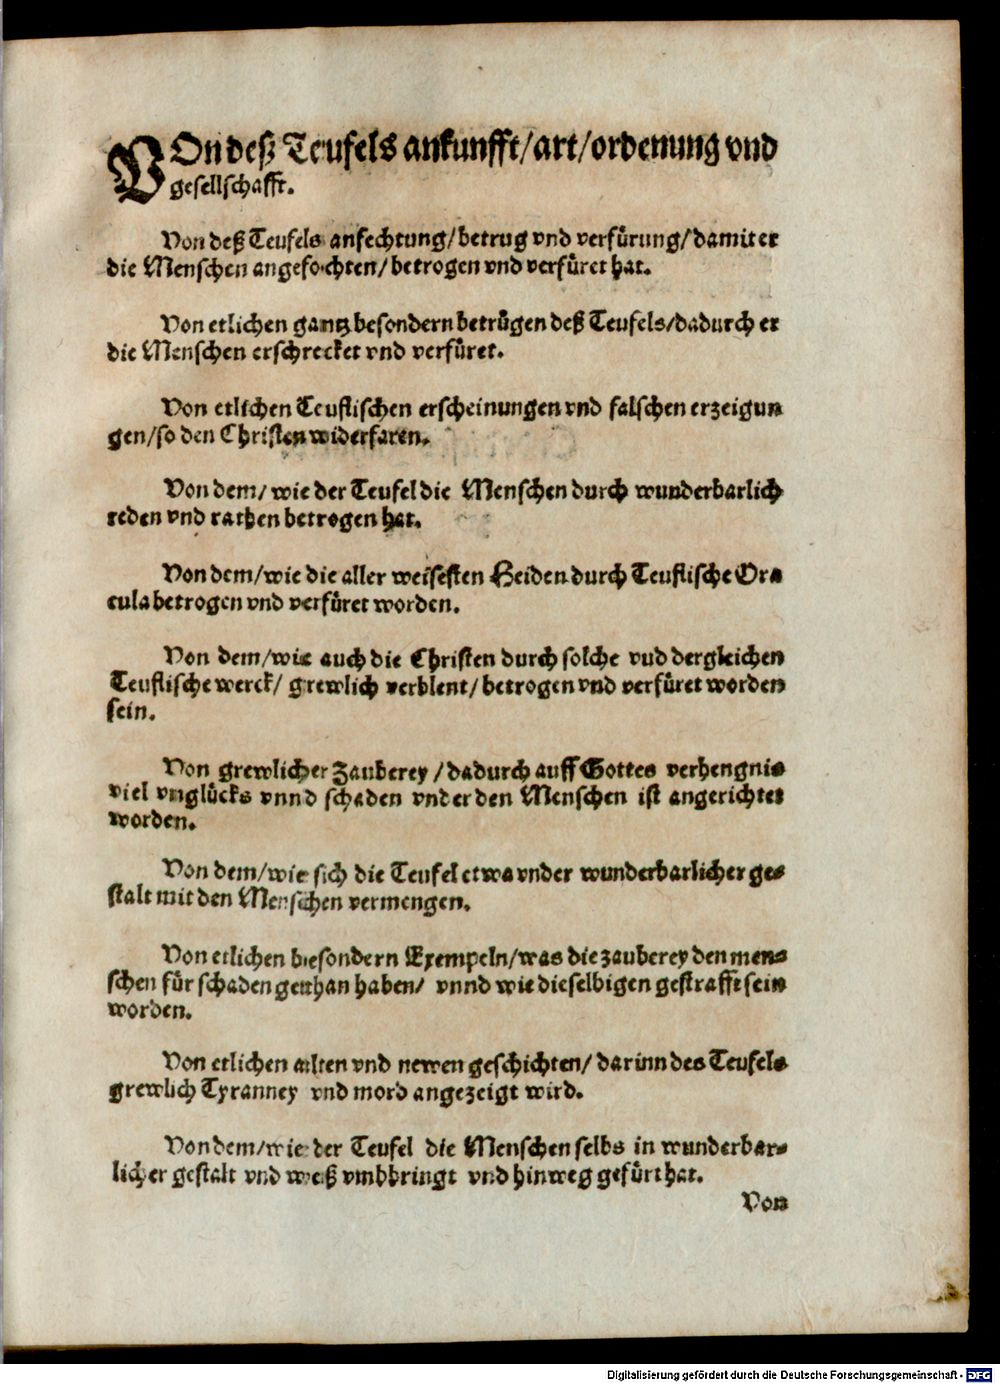 VOn deß Teufels ankunfft/art/ordenung vnd
gesellschafft.
Von deß Teufels anfechtung/betrug vnd verfürung/damit er
die Menschen angefochten/betrogen vnd verfüret hat.
Von etlichen gantz besondern betrügen deß Teufels/dadurch er
die Menschen erschrecket vnd verfüret.
Von etlichen Teuflischen erscheinungen vnd falschen erzeigun
gen/so den Christen widerfaren.
Von dem/wie der Teufel die Menschen durch wunderbarlich
reden vnd rathen betrogen hat.
Von dem/wie die aller weisesten Heiden durch Teuflische Ora⸗
cula betrogen vnd verfüret worden.
Von dem/wie auch die Christen durch solche vnd dergleichen
Teuflische werck/ grewlich verblent/betrogen vnd verfüret worden
sein.
Von grewlicher Zauberey/dadurch auff Gottes verhengnis
viel vnglücks vnnd schaden vnder den Menschen ist angerichtet
worden.
Von dem/wie sich die Teufel etwa vnder wunderbarlicher ge⸗
stalt mit den Menschen vermengen.
Von etlichen besondern Exempeln/was die zauberey den men⸗
schen für schaden gethan haben/ vnnd wie dieselbigen gestrafft sein
worden.
Von etlichen alten vnd newen geschichten/darinn des Teufels
grewlich Tyranney vnd mord angezeigt wird.
Von dem/wie der Teufel die Menschen selbs in wunderbar⸗
licher gestalt vnd weiß vmbbringt vnd hinweg gefürt hat.
Von
Digitalisierung gefördert durch die Deutsche Forschungsgemeinschaft - DFG